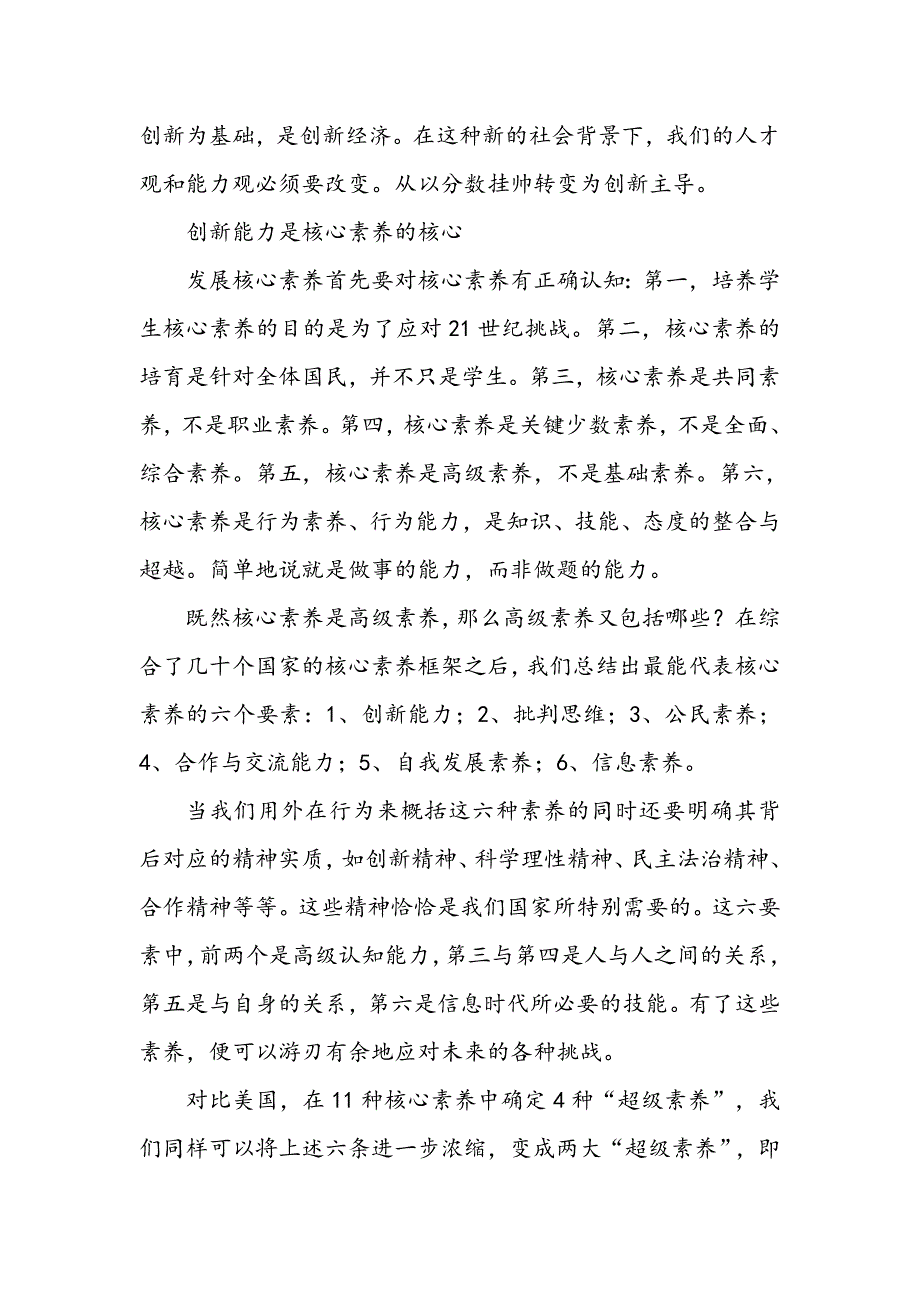 创新为基础，是创新经济。在这种新的社会背景下，我们的人才
观和能力观必须要改变。从以分数挂帅转变为创新主导。
创新能力是核心素养的核心
发展核心素养首先要对核心素养有正确认知：第一，培养学
生核心素养的目的是为了应对21世纪挑战。第二，核心素养的
培育是针对全体国民，并不只是学生。第三，核心素养是共同素
养，不是职业素养。第四，核心素养是关键少数素养，不是全面、
综合素养。第五，核心素养是高级素养，不是基础素养。第六，
核心素养是行为素养、行为能力，是知识、技能、态度的整合与
超越。简单地说就是做事的能力，而非做题的能力。
既然核心素养是高级素养，那么高级素养又包括哪些？在综
合了几十个国家的核心素养框架之后，我们总结出最能代表核心
素养的六个要素：1、创新能力；2、批判思维；3、公民素养；
4、合作与交流能力；5、自我发展素养；6、信息素养。
当我们用外在行为来概括这六种素养的同时还要明确其背
后对应的精神实质，如创新精神、科学理性精神、民主法治精神、
合作精神等等。这些精神恰恰是我们国家所特别需要的。这六要
素中，前两个是高级认知能力，第三与第四是人与人之间的关系，
第五是与自身的关系，第六是信息时代所必要的技能。有了这些
素养，便可以游刃有余地应对未来的各种挑战。
对比美国，在11种核心素养中确定4种“超级素养”，我
们同样可以将上述六条进一步浓缩，变成两大“超级素养”，即